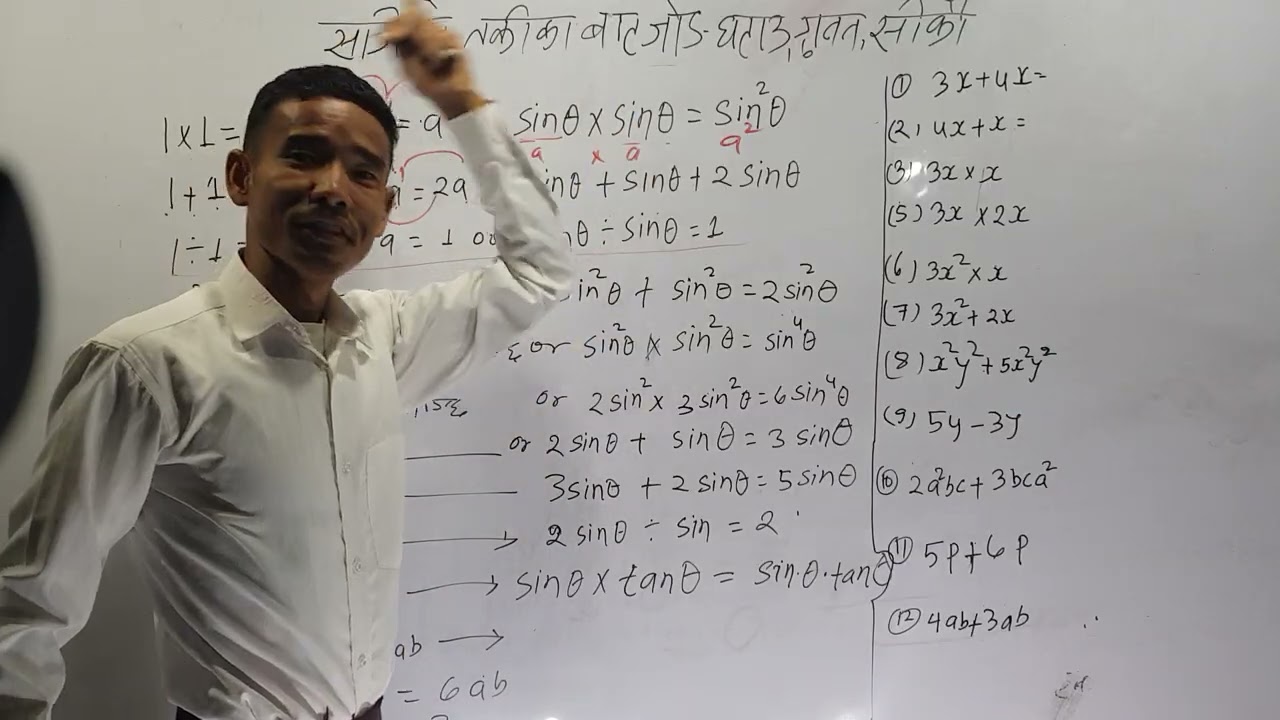 तरीका बाट जोड घटाउ, गुवत, सीकौ
1 x 1 = = a sinθ x sinθ = sin²θ
a x a a²
1 + 1 = 2a sinθ + sinθ + 2 sinθ
1 ÷ 1 = a = 1 or ÷ sinθ = 1
sin²θ + sin²θ = 2sin²θ
or sin²θ x sin²θ = sin⁴θ
or 2sin² x 3sin²θ = 6sin⁴θ
or 2sinθ + sinθ = 3sinθ
3sinθ + 2sinθ = 5sinθ
2sinθ ÷ sin = 2
sinθ x tanθ = sin.θ.tanθ
ab
= 6ab
(1) 3x+4x=
(2) 4x+x=
(3) 3x x x
(5) 3x x 2x
(6) 3x² x x
(7) 3x²+2x
(8) x²y²+5x²y²
(9) 5y-3y
(10) 2a²bc+3bca²
(11) 5p+6p
(12) 4ab+3ab